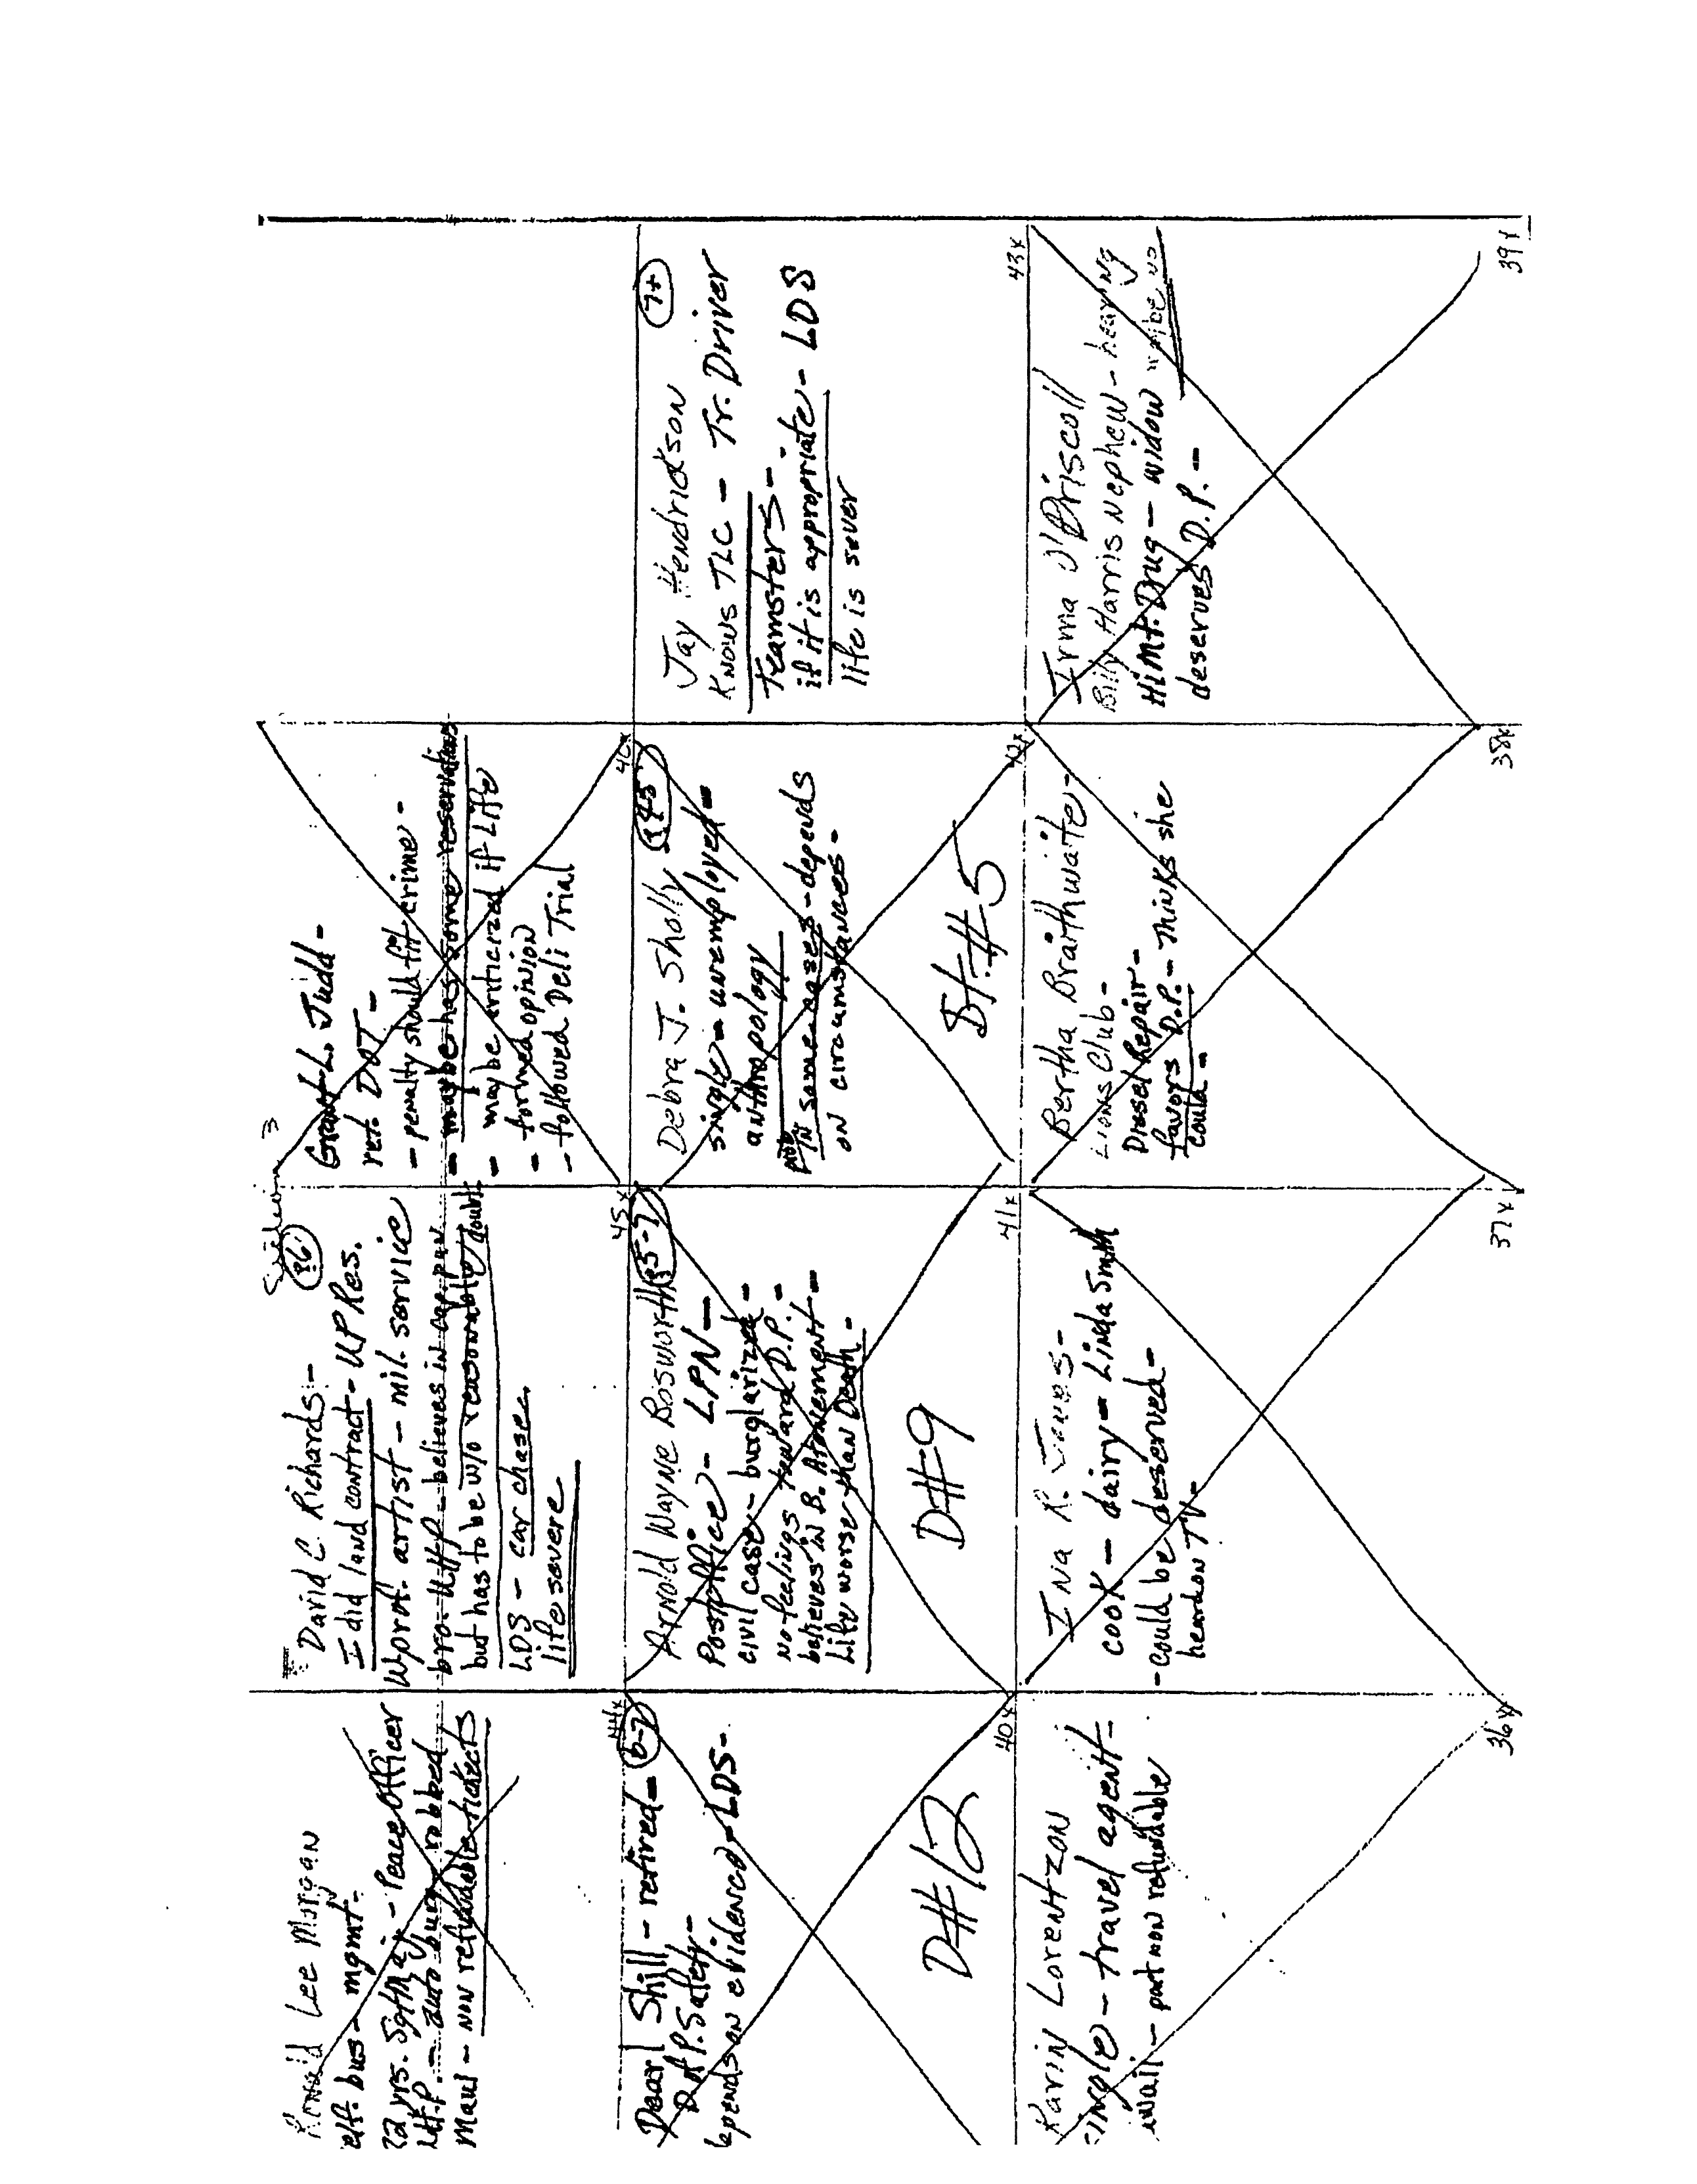 Ronald Lee Morgan
elf. bus - mgmt.
22 yrs. Sgt Maj - Peace Officer
auto burg robbed
Maui - non refundable tickets
44x
3
36
David C Richards -
I did land contract - UP Res.
artist - mil. service
bro. UHP - believes in cap. pun
but has to be w/o reasonable doubt
LDS - car chase
life severe
45x
Grant L. Judd -
ret. DOT -
- penalty should fit crime -
- maybe has some reservations
- maybe criticized if Life
- formed opinion
- followed Deli Trial
Dearl Shill - retired -
6-7
P. Safety -
epends on evidence - LDS -
D#12
40x
Arnold Wayne Bosworth
5-7
Post office - LPN -
civil case - burglarized -
No feelings toward D.P. -
believes in B. Atonement -
Life worse than Death -
D#9
41x
Debra J. Sholly
single - unemployed -
anthropology
in some cases - depends
on circumstances -
D#5
42x
7+
Jay Hendrickson
Knows TLC - Tr. Driver
Teamsters -
if it is appropriate - LDS
life is sever
43x
Karin Lorentzon
single - travel agent -
- part non refundable
36x
Ina R. Jones -
cook - dairy - Linda Smith
- could be deserved -
heard on TV -
37x
Bertha Braithwaite -
Lions Club -
Diesel Repair -
favors D.P. - thinks she
could -
38x
Irma O'Driscoll
Billy Harris Nephew - hearing
Drug - widow
deserves D.P. -
39x